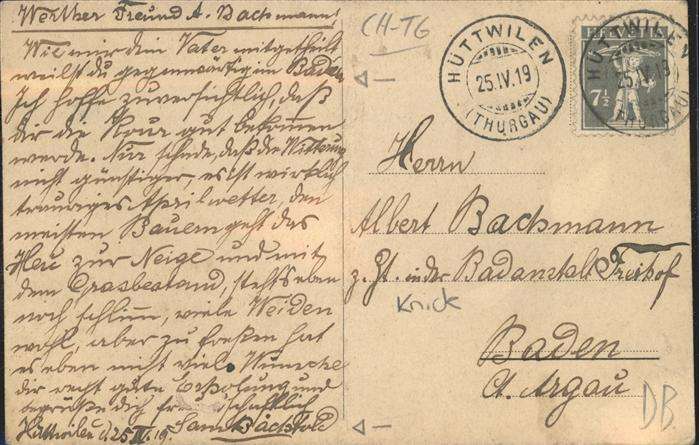 Werther Freund A. Bachmann!
Wie mir dein Vater mitgetheilt
weilst du gegenwärtig in Baden
Ich hoffe zuversichtlich, daß
dir die Kour gut bekommen
werde. Nur schade, daß die Witterung
nicht günstiger, es ist wirklich
trauriges Aprilwetter, den
meisten Bauern geht das
Heu zur Neige und mit
dem Grasbestand, steht's eben
noch schlimm, viele Weiden
wohl, aber zu freßen hat
es eben nicht viel. Wünsche
dir recht gute Erholung und
begrüße dich freundschaftlich
Hüttweilen d. 25. IV. 19. Sam. Bächtold
CH-TG
HÜTTWILEN
25.IV.19
(THURGAU)
HELVETIA
7½
HÜTTWILEN
25.IV.19
(THURGAU)
Herrn
Albert Bachmann
z. Zt. in der Badanstalt Freihof
Knick
Baden
Ct. Argau
DB